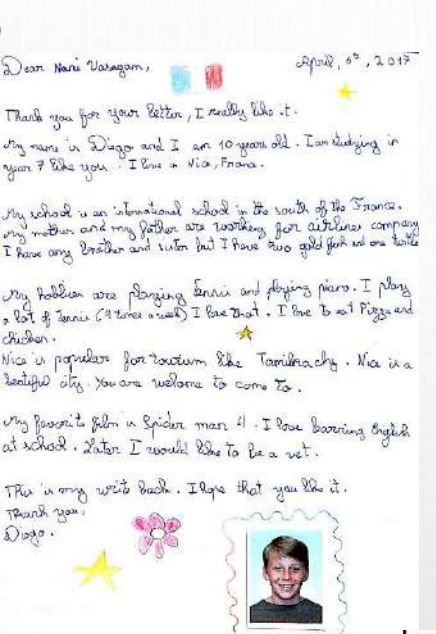 Dear Nani Vasagam, April, 6th, 2017
Thank you for your letter, I really like it.
My name is Diogo and I am 10 years old. I am studying in
year 7 like you. I live in Nice, France.
My school is an international school in the south of the France.
My mother and my father are working for airlines company
I have any brother and sister but I have two gold fish and one turtle
My hobbies are playing tennis and playing piano. I play
a lot of tennis (4 times a week) I love that. I love to eat Pizza and
chicken.
Nice is popular for tourism like Tamilnachy. Nice is a
beatiful city. You are welcome to come to.
My favorite film is Spider man 4. I love learning English
at school. Later I would like to be a vet.
This is my write back. I hope that you like it.
Thank you,
Diogo.